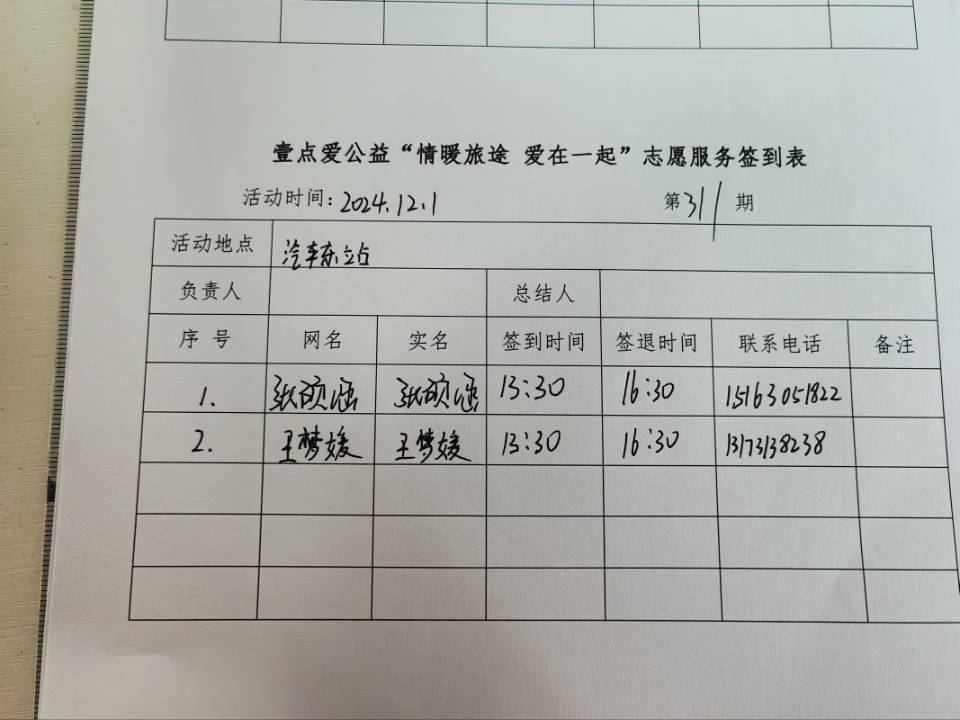 壹点爱公益“情暖旅途 爱在一起”志愿服务签到表
活动时间：2024.12.1 第311期
活动地点 汽车东站
负责人 总结人
序号 网名 实名 签到时间 签退时间 联系电话 备注
1. 张硕涵 张硕涵 13:30 16:30 15163051822
2. 王梦媛 王梦媛 13:30 16:30 13173138238